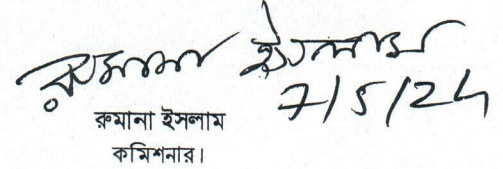 রুমানা ইসলাম
7/5/24
রুমানা ইসলাম
কমিশনার।